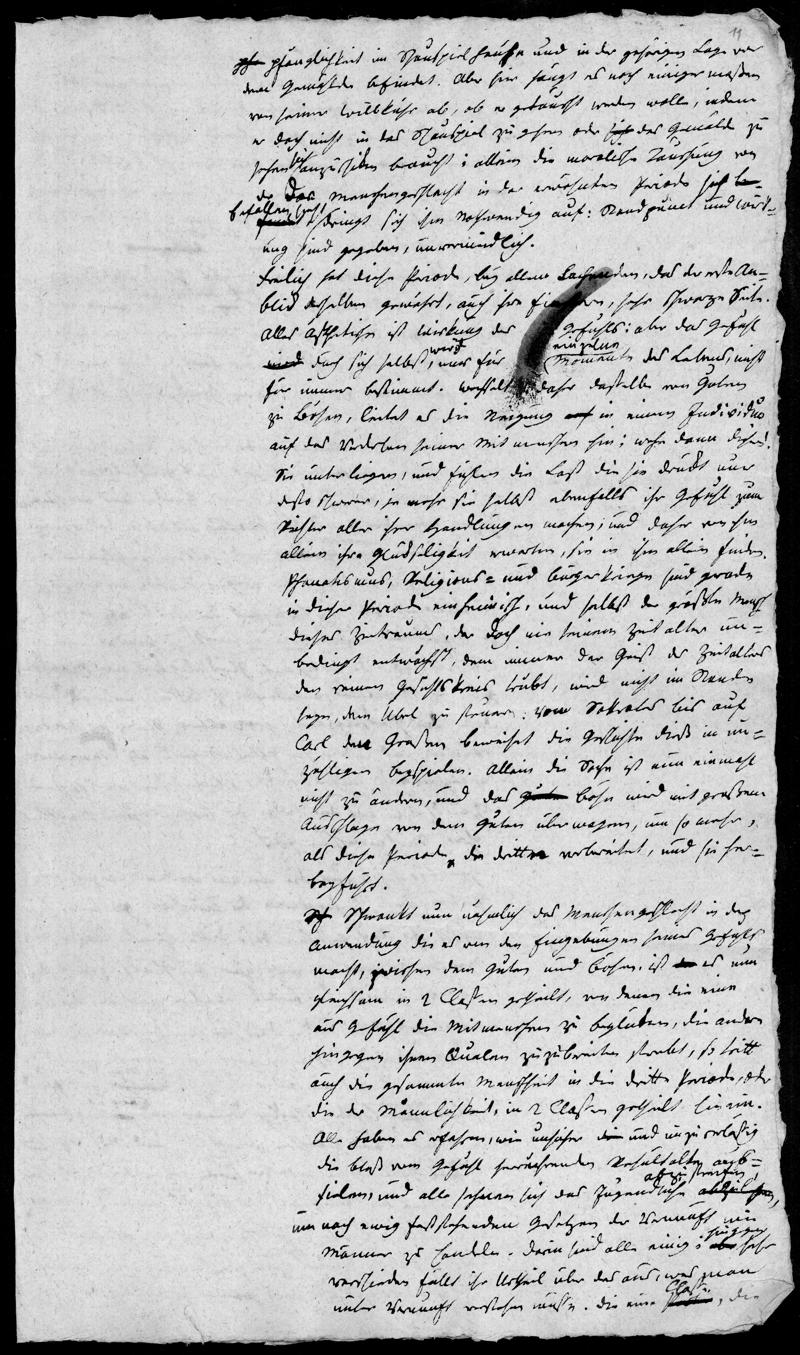 11
pfänglichkeit im Schauspielhause und in der gehörigen Lage vor
dem Gemählde befindet. Aber hier hängt es noch einiger maßen
von seiner Willkühr ab, ob er getäuscht werden wolle, indem
er doch nicht in das Schauspiel zu gehen oder das Gemälde zu
sehen sich braucht; allein die moralische Täuschung von
Menschengeschlecht in der erwähnten Periode
befallen dringt sich ihm nothwendig auf: Standpunct und Wirk=
ung sind gegeben, unvermeidlich.
Freilich hat diese Periode, bey allem Lachenden, das der erste An=
blick derselben gewährt, auch ihre sehr schwarze Seite.
Alles Ästhetische ist Wirkung des Gefühls: aber das Gefühl
wird doch sich selbst, nur für einzelne Momente des Lebens, nicht
für immer bestimmt. Wechselt daher dasselbe vom Guten
zu Bösen, leitet es die Neigung in einem Individuo
auf das Verderben seiner Mitmenschen hin; wehe dann diesen.
Sie unterliegen, und fühlen die Last die sie drückt nur
desto schwerer, je mehr sie selbst ebenfalls ihr Gefühl zum
Richter aller ihrer Handlungen machen; und daher von ihm
allein ihre Glückseligkeit erwarten, sie in ihm allein finden.
Phanatismus, Religions= und Bürgerkriege sind gerade
in dieser Periode einheimisch, und selbst der größte Mensch
dieses Zeitraums, der doch nie seinem Zeitalter un=
bedingt entwächst, dem immer der Geist des Zeitalters
den reinen Gesichtskreis trübt, wird nicht im Stande
seyn, dem Übel zu steuern: vom Sokrates bis auf
Carl dem Großen beweiset die Geschichte dieß in un=
zähligen Beyspielen. Allein die Sache ist nun einmahl
nicht zu ändern, und das böse wird mit großem
Ausschlage von dem Guten überwogen, um so mehr,
als diese Periode, die dritte vorbereitet, und sie her=
beyführt.
Schwankt nun nehmlich das Menschengeschlecht in der
Anwendung die es von den Eingebungen seines Gefühls
macht, zwischen dem Guten und Bösen, ist es nun
gleichsam in 2 Classen getheilt, von denen die eine
aus Gefühl die Mitmenschen zu beglücken, die andere
hingegen ihnen Qualen zuzubereiten strebt, so tritt
auch die gesammte Menschheit in die dritte Periode, oder
die der Männlichkeit, in 2 Classen getheilt hinein.
Alle haben es erfahren, wie unsicher und unzuverläßig
die bloß vom Gefühl herrührenden Resultate aus=
fielen, und alle sehnen sich das Jugendliche abzustreifen,
um nach ewig feststehenden Gesetzen der Vernunft wie
Männer zu handeln. Darin sind alle einig; hingegen sehr
verschieden fällt ihr Urtheil über das aus, was man
unter Vernunft verstehen müsse. Die eine Classe, die